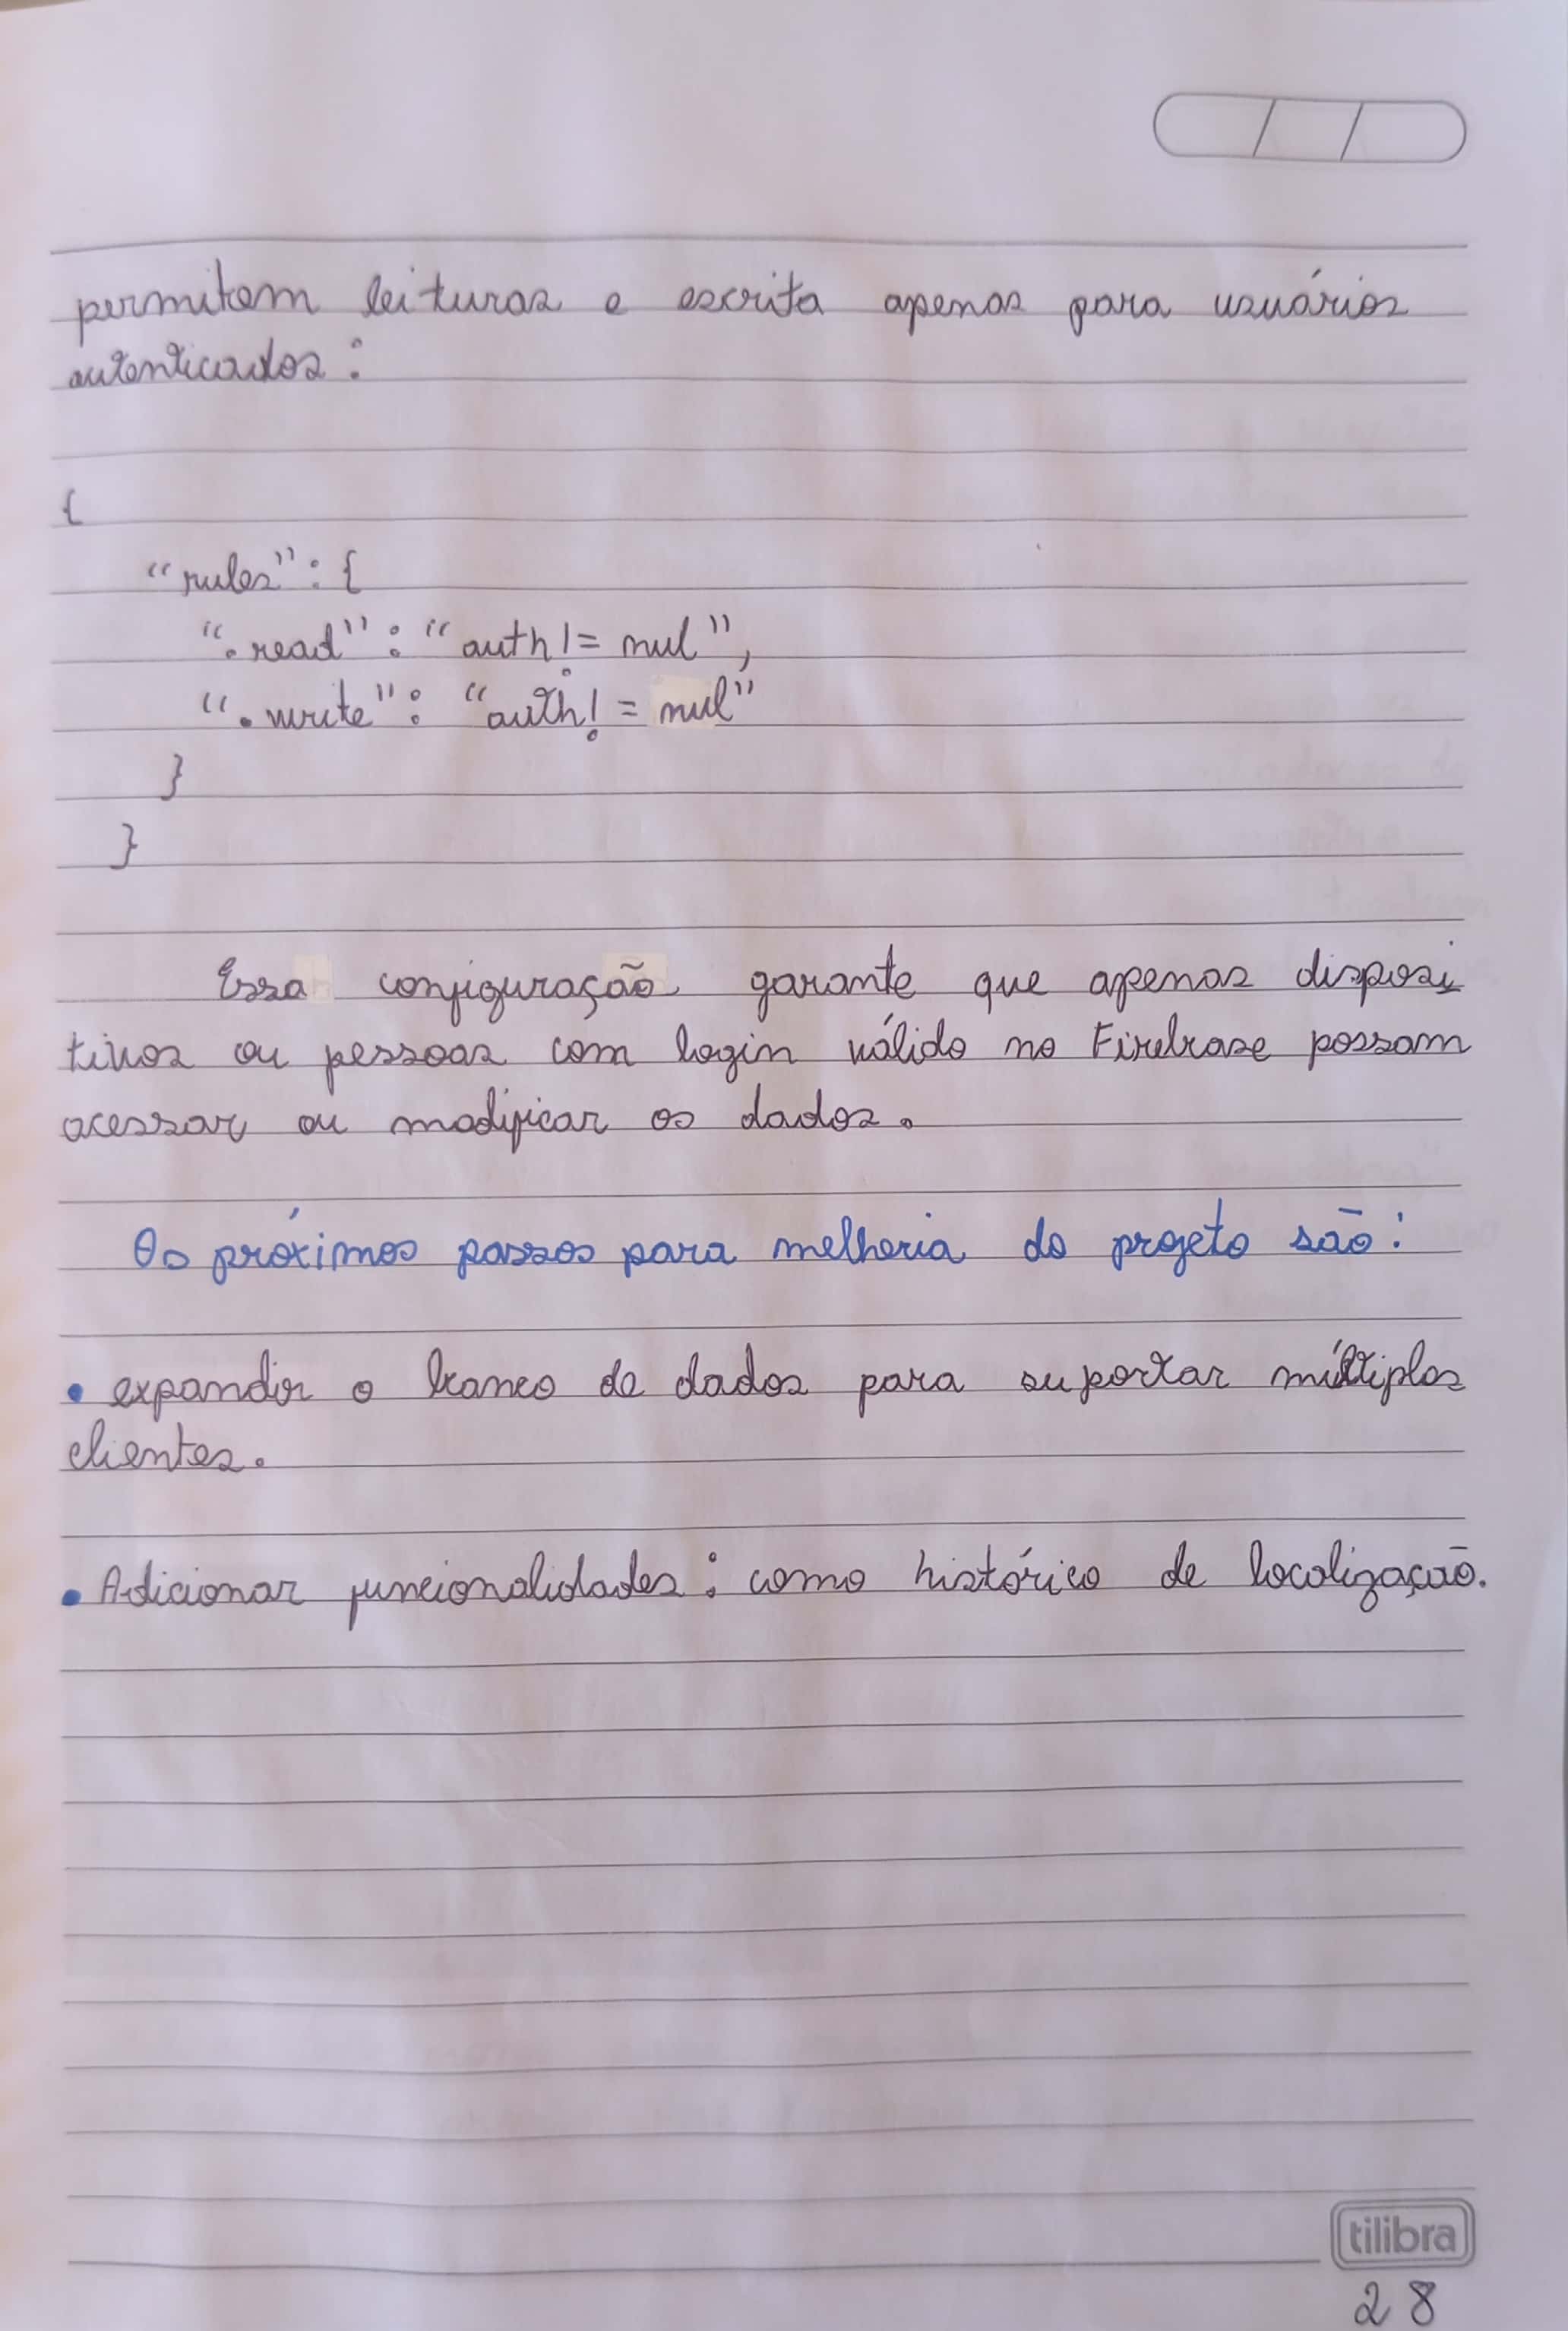 permitem leituras e escrita apenas para usuários
autenticados:
{
"rules": {
".read": "auth!= nul",
".write": "auth! = nul"
}
}
Essa configuração garante que apenas disposi
tivos ou pessoas com login válido no Firebase possam
acessar ou modificar os dados.
Os próximos passos para melhoria do projeto são:
• expandir o banco de dados para suportar múltiplos
clientes.
• Adicionar funcionalidades: como histórico de localização.
tilibra
28